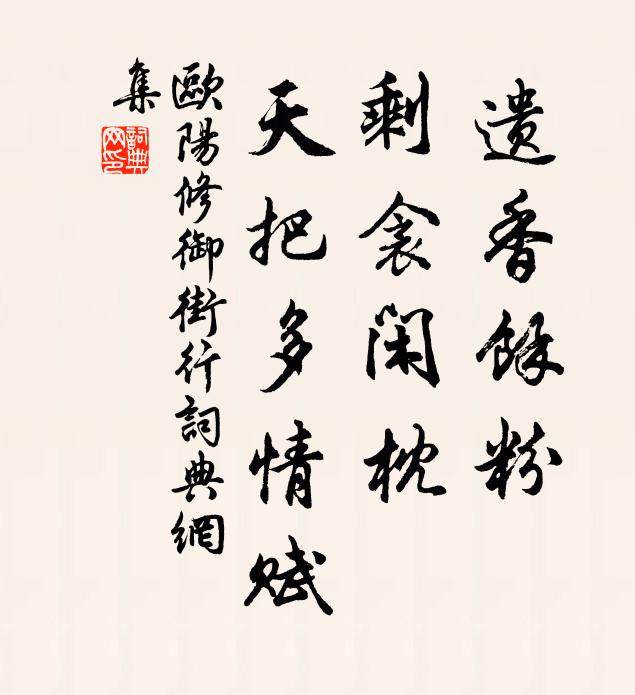 遺香餘粉
剩衾閑枕
天把多情賦
歐陽修御街行詞典網
集
詞典網印